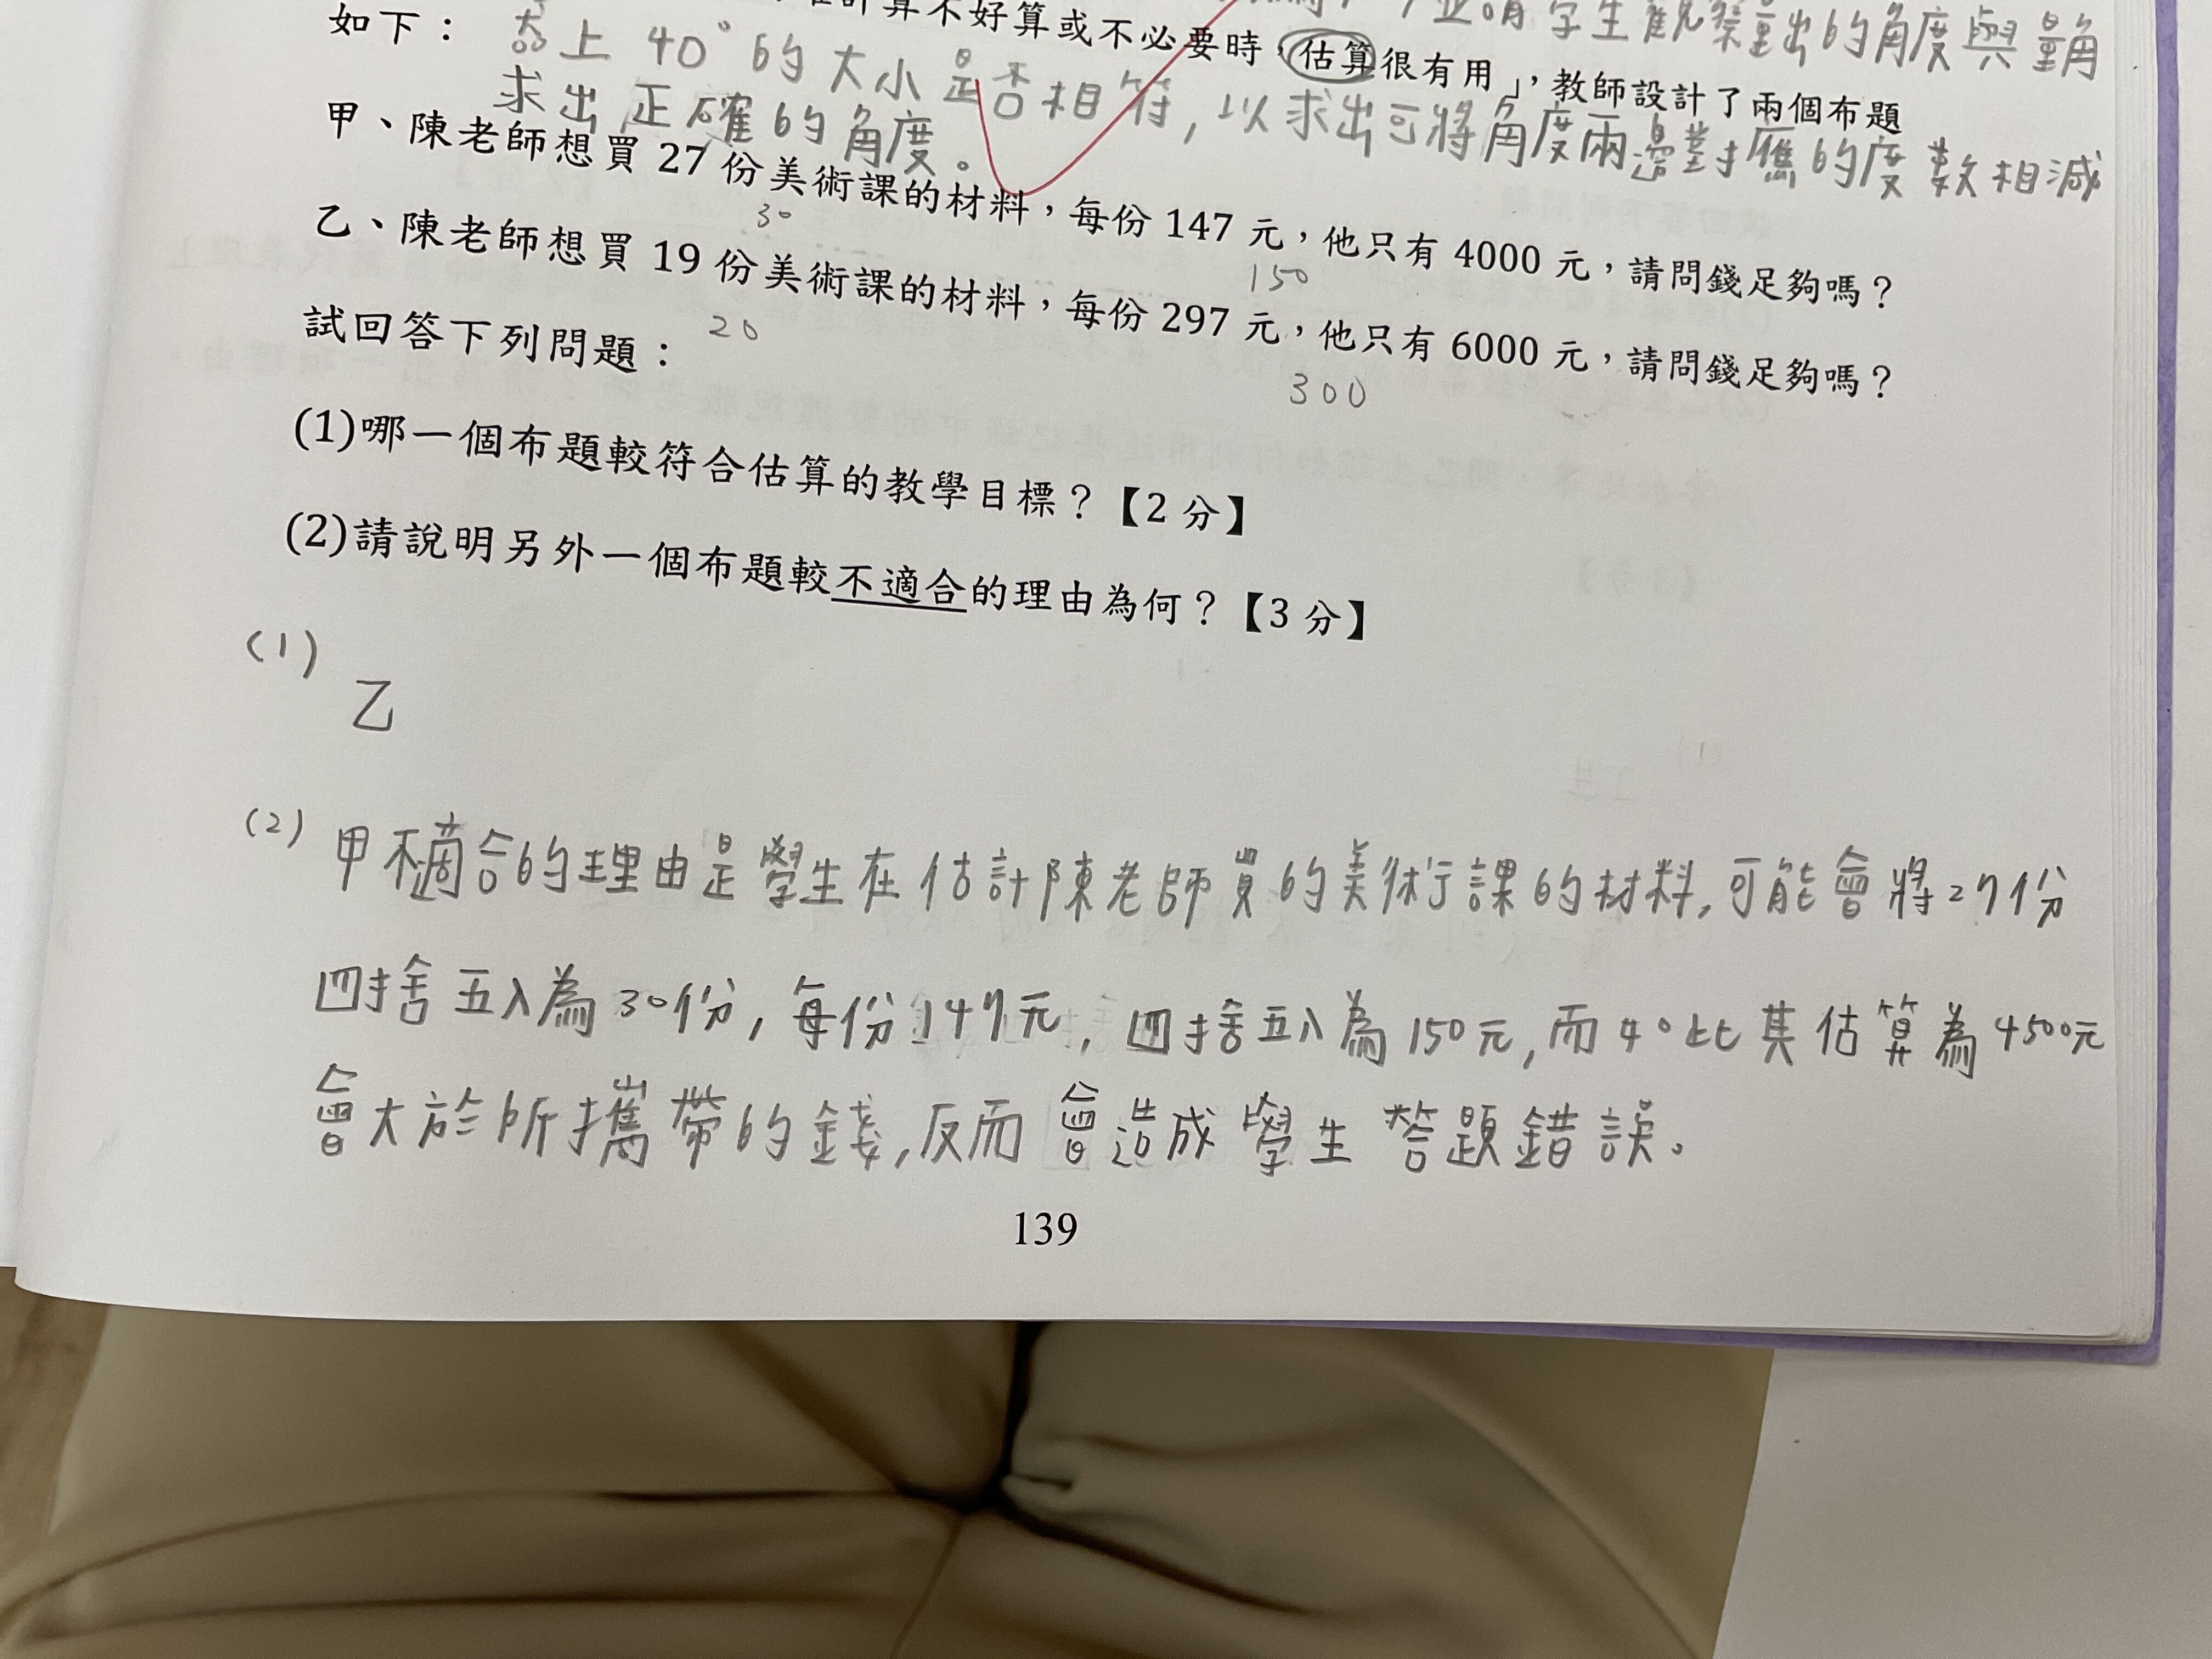 計算不好算或不必要時，估算很有用」，教師設計了兩個布題
如下：
學生觀察量出的角度與量角
器上 40° 的大小是否相符，以求出可將角度兩邊對應的度數相減
求出正確的角度。
甲、陳老師想買 27 份美術課的材料，每份 147 元，他只有 4000 元，請問錢足夠嗎？
30
150
乙、陳老師想買 19 份美術課的材料，每份 297 元，他只有 6000 元，請問錢足夠嗎？
20
300
試回答下列問題：
(1)哪一個布題較符合估算的教學目標？【2 分】
(2)請說明另外一個布題較不適合的理由為何？【3 分】
(1)
乙
(2) 甲不適合的理由是學生在估計陳老師買的美術課的材料，可能會將27份
四捨五入為30份，每份147元，四捨五入為150元，而40比其估算為4500元
會大於所攜帶的錢，反而會造成學生答題錯誤。
139